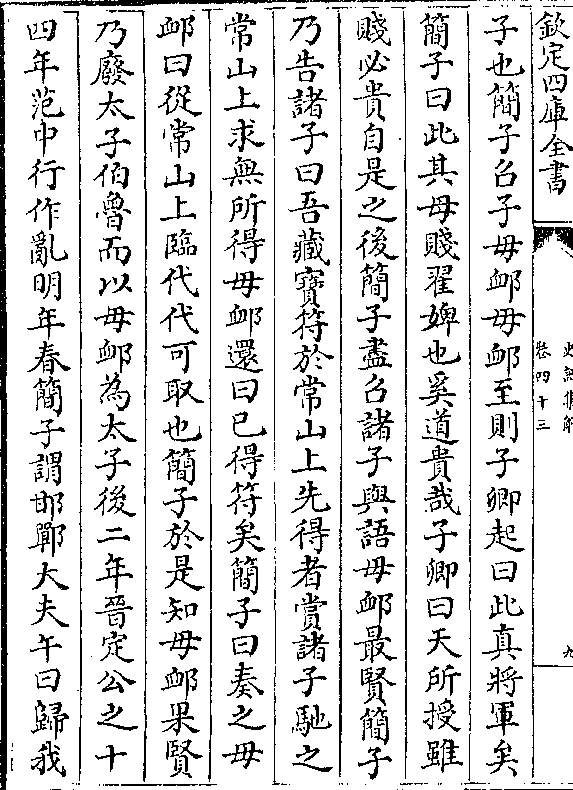 欽定四庫全書
史記集解
卷四十三
九
子也簡子召子毋䘏毋䘏至則子卿起曰此真將軍矣
簡子曰此其母賤翟婢也奚道貴哉子卿曰天所授雖
賤必貴自是之後簡子盡召諸子與語毋䘏最賢簡子
乃告諸子曰吾藏寶符於常山上先得者賞諸子馳之
常山上求無所得毋䘏還曰已得符矣簡子曰奏之毋
䘏曰從常山上臨代代可取也簡子於是知毋䘏果賢
乃廢太子伯魯而以毋䘏為太子後二年晉定公之十
四年范中行作亂明年春簡子謂邯鄲大夫午曰歸我